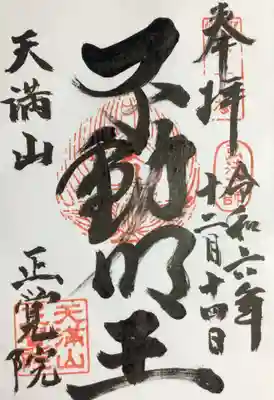 奉拝
令和六年
十二月十四日
不動明王
天満山
正覚院
天満山